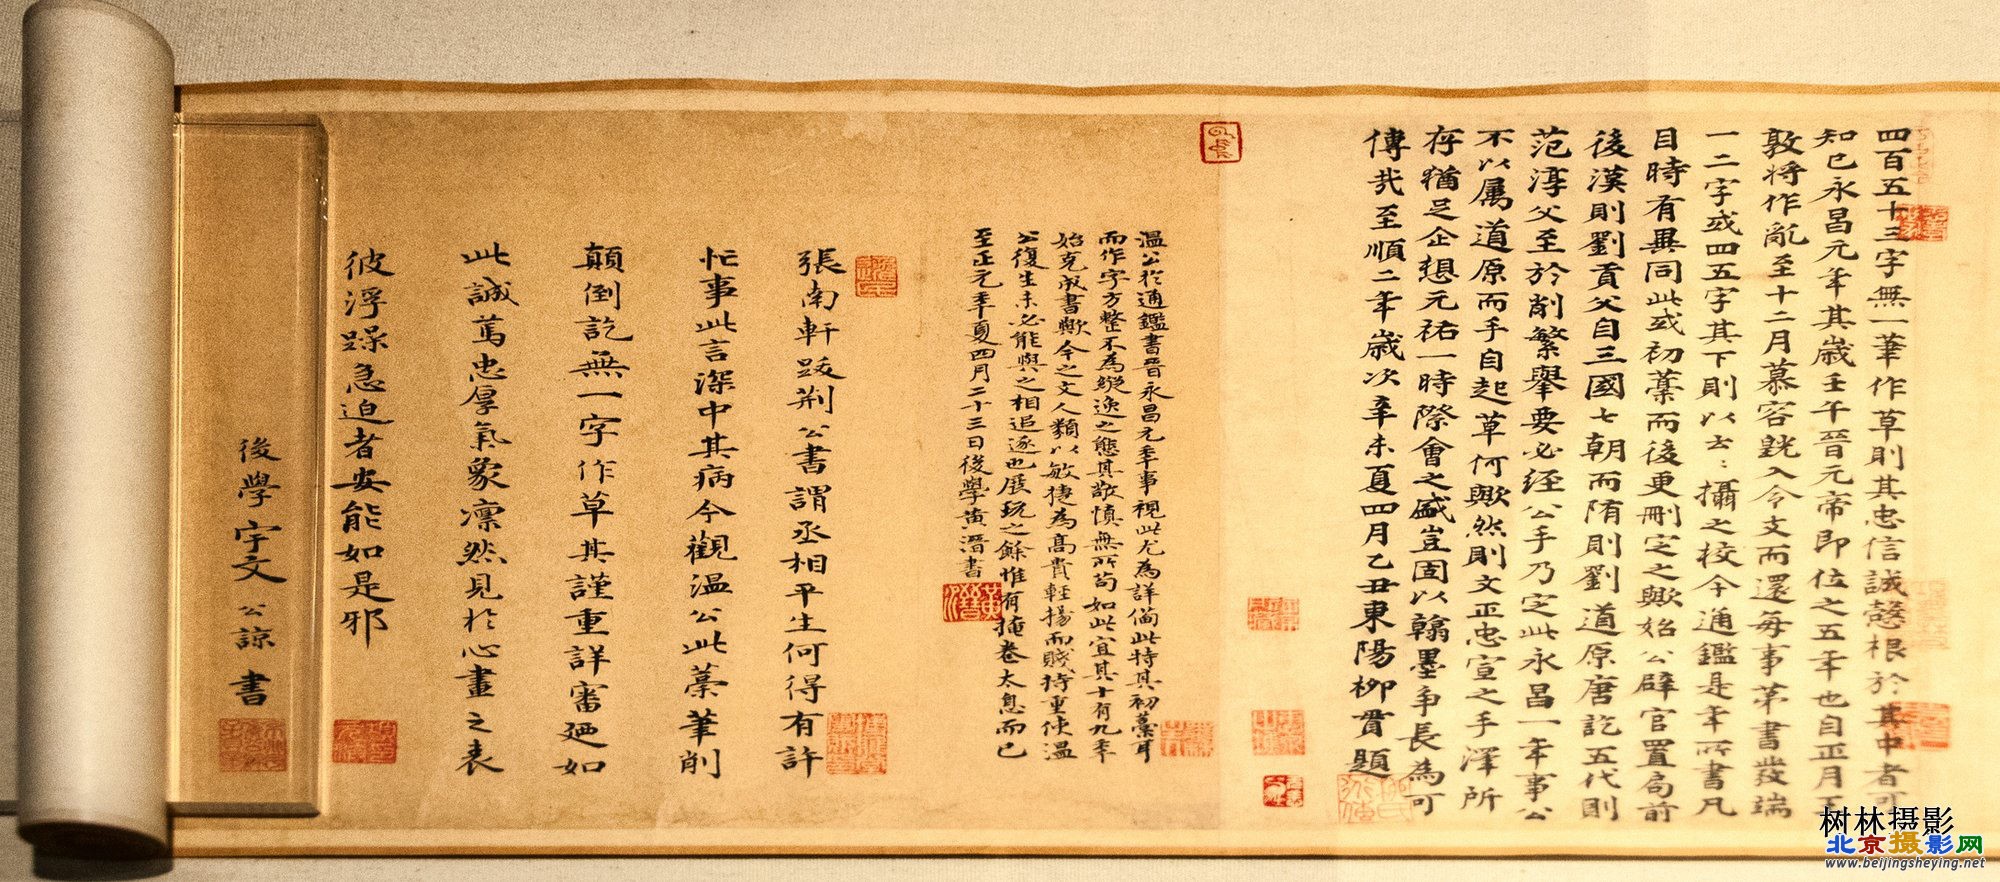 四百五十三字無一筆作草則其忠信誠慤根於其中者可
知已永昌元年其歲壬午晉元帝即位之五年也自正月王
敦將作亂至十二月慕容皝入令支而還每事第書發端
一二字或四五字其下則以云云攝之校今通鑑是年所書凡
目時有異同此或初藁而後更刪定之歟始公辟官置局前
後漢則劉貢父自三國七朝而隋則劉道原唐訖五代則
范淳父至於削繁舉要必經公手乃定此永昌一年事公
不以属道原而手自起草何歟然則文正忠宣之手澤所
存猶足企想元祐一時際會之盛豈固以翰墨爭長為可
傳哉至順二年歲次辛未夏四月乙丑東陽柳貫題
溫公於通鑑書晉永昌元年事視此尤為詳備此特其初藁耳
而作字方整不為縱逸之態其敬慎無所苟如此宜其十有九年
始克成書歟今之文人類以敏捷為高貴輕揚而賤持重使溫
公復生未必能與之相追逐也展玩之餘惟有掩卷太息而已
至正元年夏四月二十三日後學黃溍書
黃溍
張南軒跋荊公書謂丞相平生何得有許
忙事此言深中其病今觀溫公此藁筆削
顛倒訖無一字作草其謹重詳審廼如
此誠篤忠厚氣象凜然見於心畫之表
彼浮躁急迫者安能如是邪
後學宇文公諒書
树林摄影
北京摄影网
www.beijingsheying.net